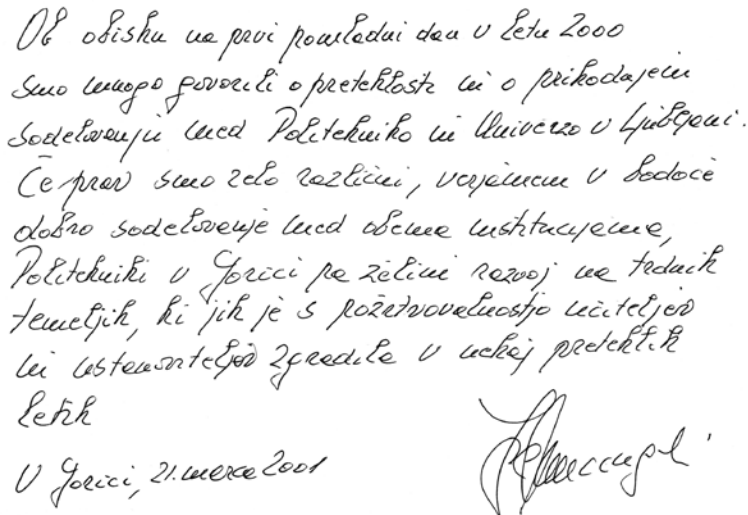 Ob obisku na prvi pomladni dan v letu 2000
smo mnogo govorili o preteklosti in o prihodajem
sodelovanju med Politehniko in Univerzo v Ljubljani.
Če prav smo zelo različni, verjamem v bodoče
dobro sodelovanje med obema institucijama,
Politehniki v Gorici pa želim razvoj na trdnih
temeljih, ki jih je s požrtvovalnostjo učiteljev
in ustanoviteljev zgradila v nekaj preteklih
letih
V Gorici, 21. marca 2001